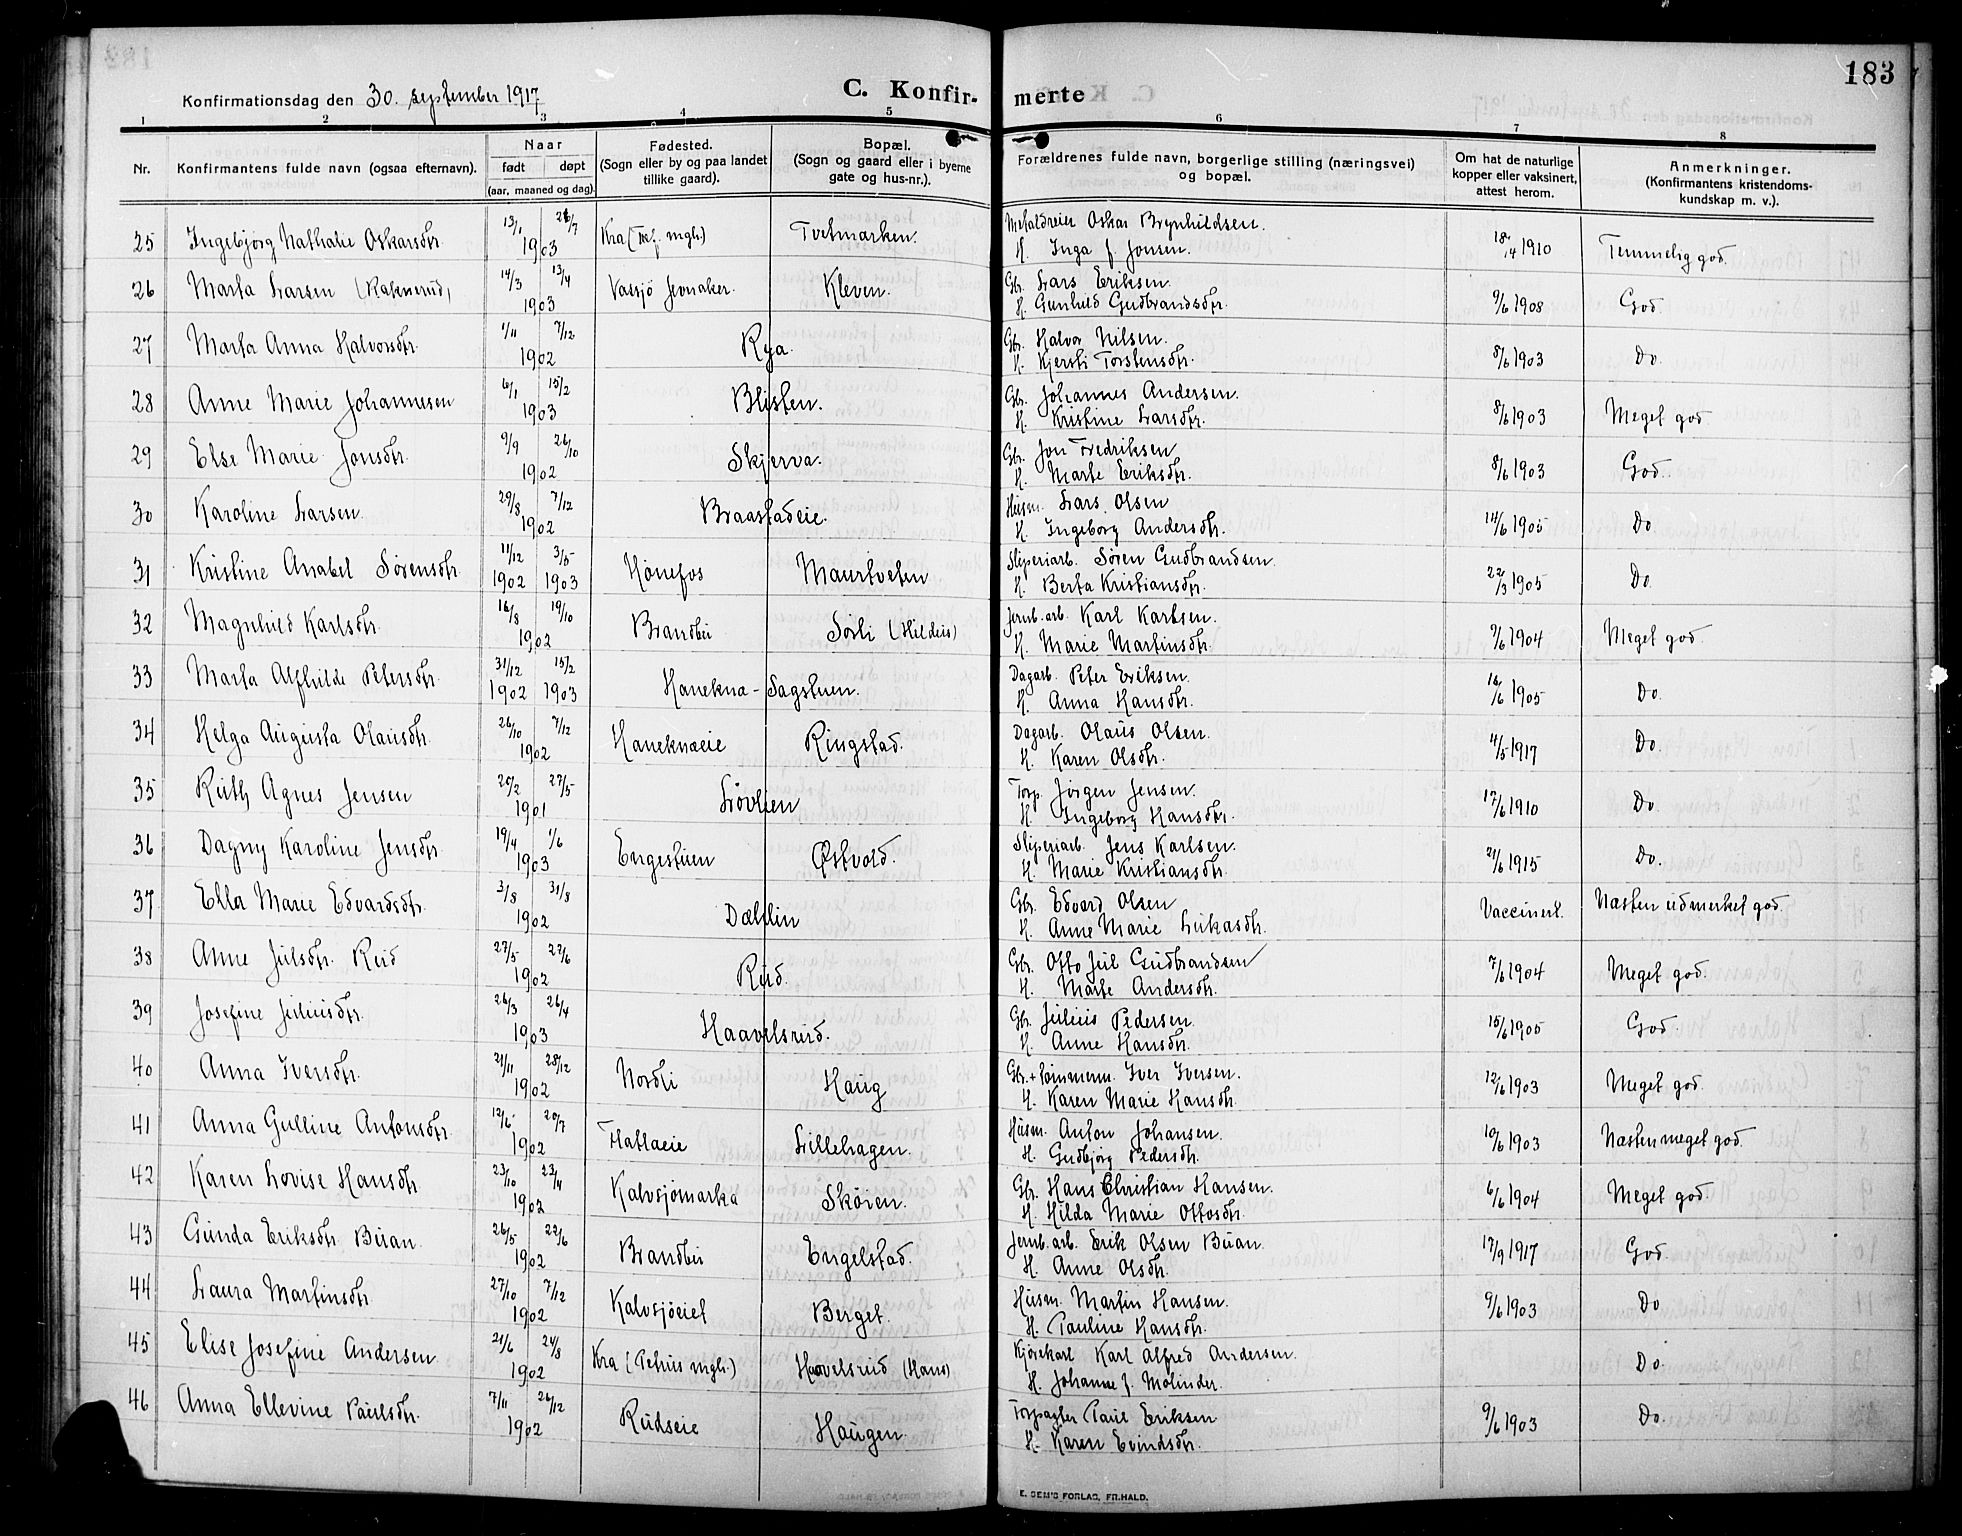 183
Konfirmationsdag den 30. september 1917
C. Konfir- merte
1 2 3 4 5 6 7 8
Nr. Konfirmantens fulde navn (ogsaa efternavn). Naar født døpt (aar, maaned og dag). Fødested. (Sogn eller by og paa landet tillike gaard). Bopæl. (Sogn og gaard eller i byerne gate og hus-nr.). Forældrenes fulde navn, borgerlige stilling (næringsvei) og bopæl. Om hat de naturlige kopper eller vaksinert, attest herom. Anmerkninger. (Konfirmantens kristendoms- kundskap m. v.).
25 Ingebjörg Nathalie Oskarsdtr. 13/1 1903 Kra Tvetmarken. Oskar Brynhildsen. 18/4 1910 Temmelig god.
H. Inga J. Jonsen.
26 Marta Larsen (Raknerud) 14/3 13/4 1903 Vassjö Jevnaker. Kleven. Gbr. Lars Eriksen. 9/6 1908 God.
H. Gunhild Gudbrandsdtr.
27 Marta Anna Halvorsdtr. 1/11 7/12 1902 Rya. Gbr. Halvor Nilsen. 8/6 1903 Do.
H. Kjersti Torstensdtr.
28 Anne Marie Johannesen 6/1 15/2 1903 Blisten. Gbr. Johannes Andersen. 8/6 1903 Meget god.
H. Kristine Larsdtr.
29 Else Marie Jonsdtr. 9/9 26/10 1902 Skjerva. Gbr. Jon Fredriksen 8/6 1903 God.
H. Marte Eriksdtr.
30 Karoline Larsen. 29/8 7/12 1902 Braastadeie. Husm. Lars Olsen 14/6 1905 Do
H. Ingeborg Andersdtr.
31 Kristine Anabel Sörensdtr. 11/12 1902 3/5 1903 Hönefos Maurtveten Sliperiarb. Sören Gudbrandsen. 22/3 1905 Do
H. Berta Kristiansdtr.
32 Magnhild Karlsdtr. 16/8 19/10 1902 Brandbu Sörli Jernb.arb. Karl Karlsen. 9/6 1904 Meget god.
H. Marie Martinsdtr.
33 Marta Alfhilde Petersdtr. 31/12 1902 15/2 1903 Hanekna - Sagstuen. Dagarb. Peter Eriksen. 16/6 1905 Do.
H. Anna Hansdtr.
34 Helga Augusta Olausdtr. 26/10 7/12 1902 Haneknaeie Ringstad. Dagarb. Olaus Olsen. 4/5 1917 Do.
H. Karen Olsdtr.
35 Ruth Agnes Jensen 20/2 27/5 1901 Lövlien Torp. Jörgen Jensen. 17/6 1910 Do.
H. Ingeborg Hansdtr.
36 Dagny Karoline Jensdtr. 19/4 1/6 1903 Engestuen Østvold. Sliperiarb. Jens Karlsen. 21/6 1915 Do.
H. Marie Kristiansdtr.
37 Ella Marie Edvardsdtr. 3/8 31/8 1902 Dæhlin Gbr. Edvard Olsen Vaccinert. Næsten udmerket god.
H. Anne Marie Lukasdtr.
38 Anne Julsdtr. Rud 27/5 27/6 1902 Rud. Gbr. Otto Juul Gudbrandsen 7/6 1904 Meget god.
H. Marte Andersdtr.
39 Josefine Juliusdtr. 26/3 26/4 1903 Haavelsrud. Gbr. Julius Pedersen. 15/6 1905 God.
H. Anne Hansdtr.
40 Anna Iversdtr. 21/11 28/12 1902 Nordli Haug Gbr. + tömmerm. Iver Iversen. 12/6 1903 Meget god.
H. Karen Marie Hansdtr.
41 Anna Gulline Antonsdtr. 12/6 20/7 1902 Flattaeie Lillehagen. Husm. Anton Johansen. 10/6 1903 Næsten meget god.
H. Gudbjörg Pedersdtr.
42 Karen Lovise Hansdtr. 23/10 23/4 1902 Kalvsjömarka Sköien. Gbr. Hans Christian Hansen. 6/6 1904 Meget god.
H. Hilda Marie Ottosdtr.
43 Gunda Eriksdtr. Buan. 26/5 22/6 1902 Brandbu Engelstad. Jernb.arb. Erik Olsen Buan. 17/9 1917 God.
H. Anne Olsdtr.
44 Laura Martinsdtr. 27/10 7/12 1902 Kalvsjöeiet Berget. Husm. Martin Hansen. 9/6 1903 Do
H. Pauline Hansdtr.
45 Elise Josefine Andersen. 21/6 24/8 1902 Kra (Petrus mgh.) Haavelsrud (Hans) Kjörekarl Karl Alfred Andersen. Do.
H. Johanne J. Molinder.
46 Anna Ellevine Paulsdtr. 7/11 26/12 1902 Rudseie Haugen. Paul Eriksen 9/6 1903 Do.
H. Karen Evindsdtr.
E. SEM'S FORLAG, FR.HALD.